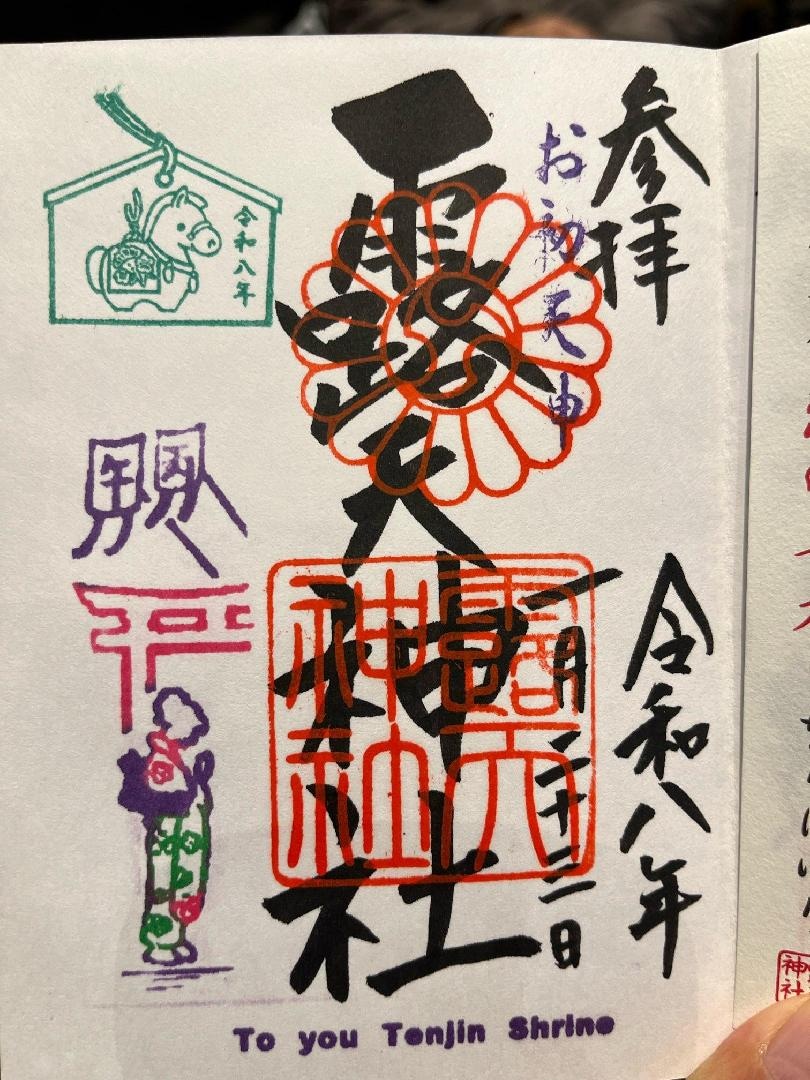 参拝
お初天神
令和八年
一月二十三日
露天神社
露天
神社
令和八年
To you Tenjin Shrine